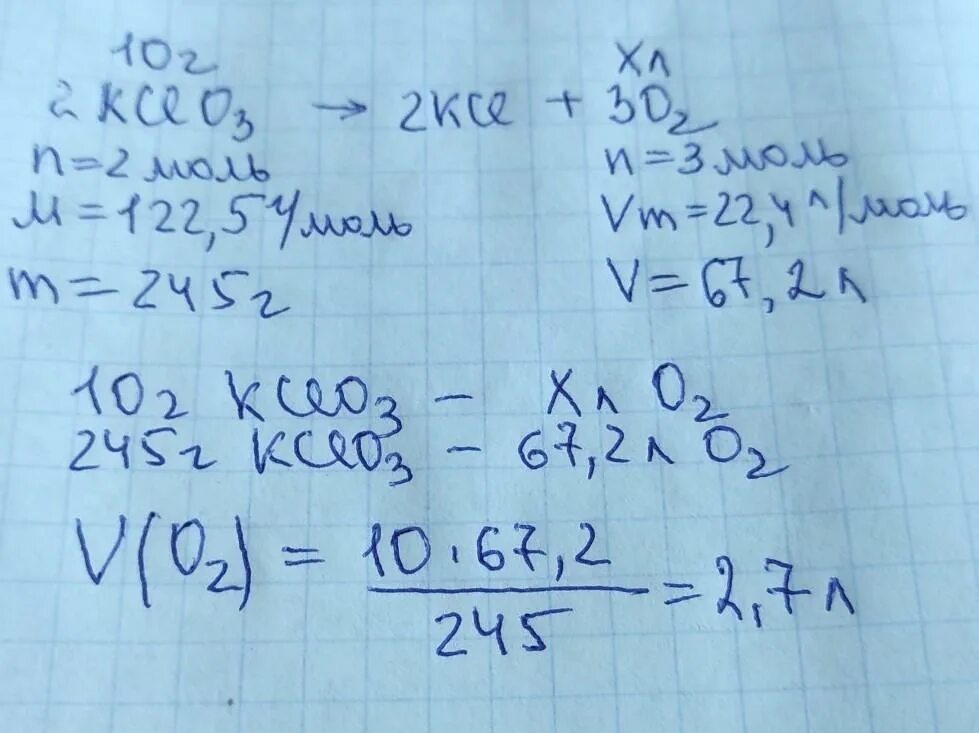 10г Хл
2KClO₃ → 2KCl + 3O₂
n=2моль n=3моль
M=122,5г/моль Vm=22,4л/моль
m=245г V=67,2л
10г KClO₃ – Хл O₂
245г KClO₃ – 67,2л O₂
V(O₂) = 10·67,2 / 245 = 2,7л